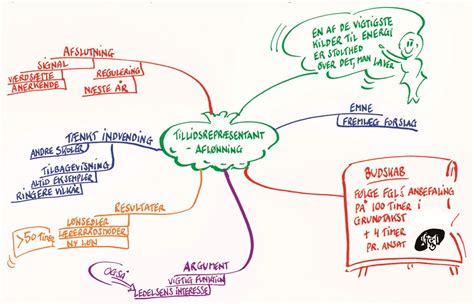 AFSLUTNING
SIGNAL
VÆRDSÆTTE
ANERKENDE
REGULERING
NÆSTE ÅR
EN AF DE VIGTIGSTE
KILDER TIL ENERGI
ER STOLTHED
OVER DET, MAN LAVER
EMNE
FREMLÆG FORSLAG
TÆNKT INDVENDING
ANDRE SKOLER
TILBAGEVISNING
ALTID EKSEMPLER
RINGERE VILKÅR
TILLIDSREPRÆSENTANT
- AFLØNNING
BUDSKAB
FØLGE FGL'S ANBEFALING
PÅ 100 TIMER I
GRUNDTAKST
+ 4 TIMER
PR. ANSAT
RESULTATER
LØNSEDLER
LÆRERRÅDSMØDER
NY LØN
>50 TIMER
ARGUMENT
VIGTIG FUNKTION
LEDELSENS INTERESSE
OGSÅ